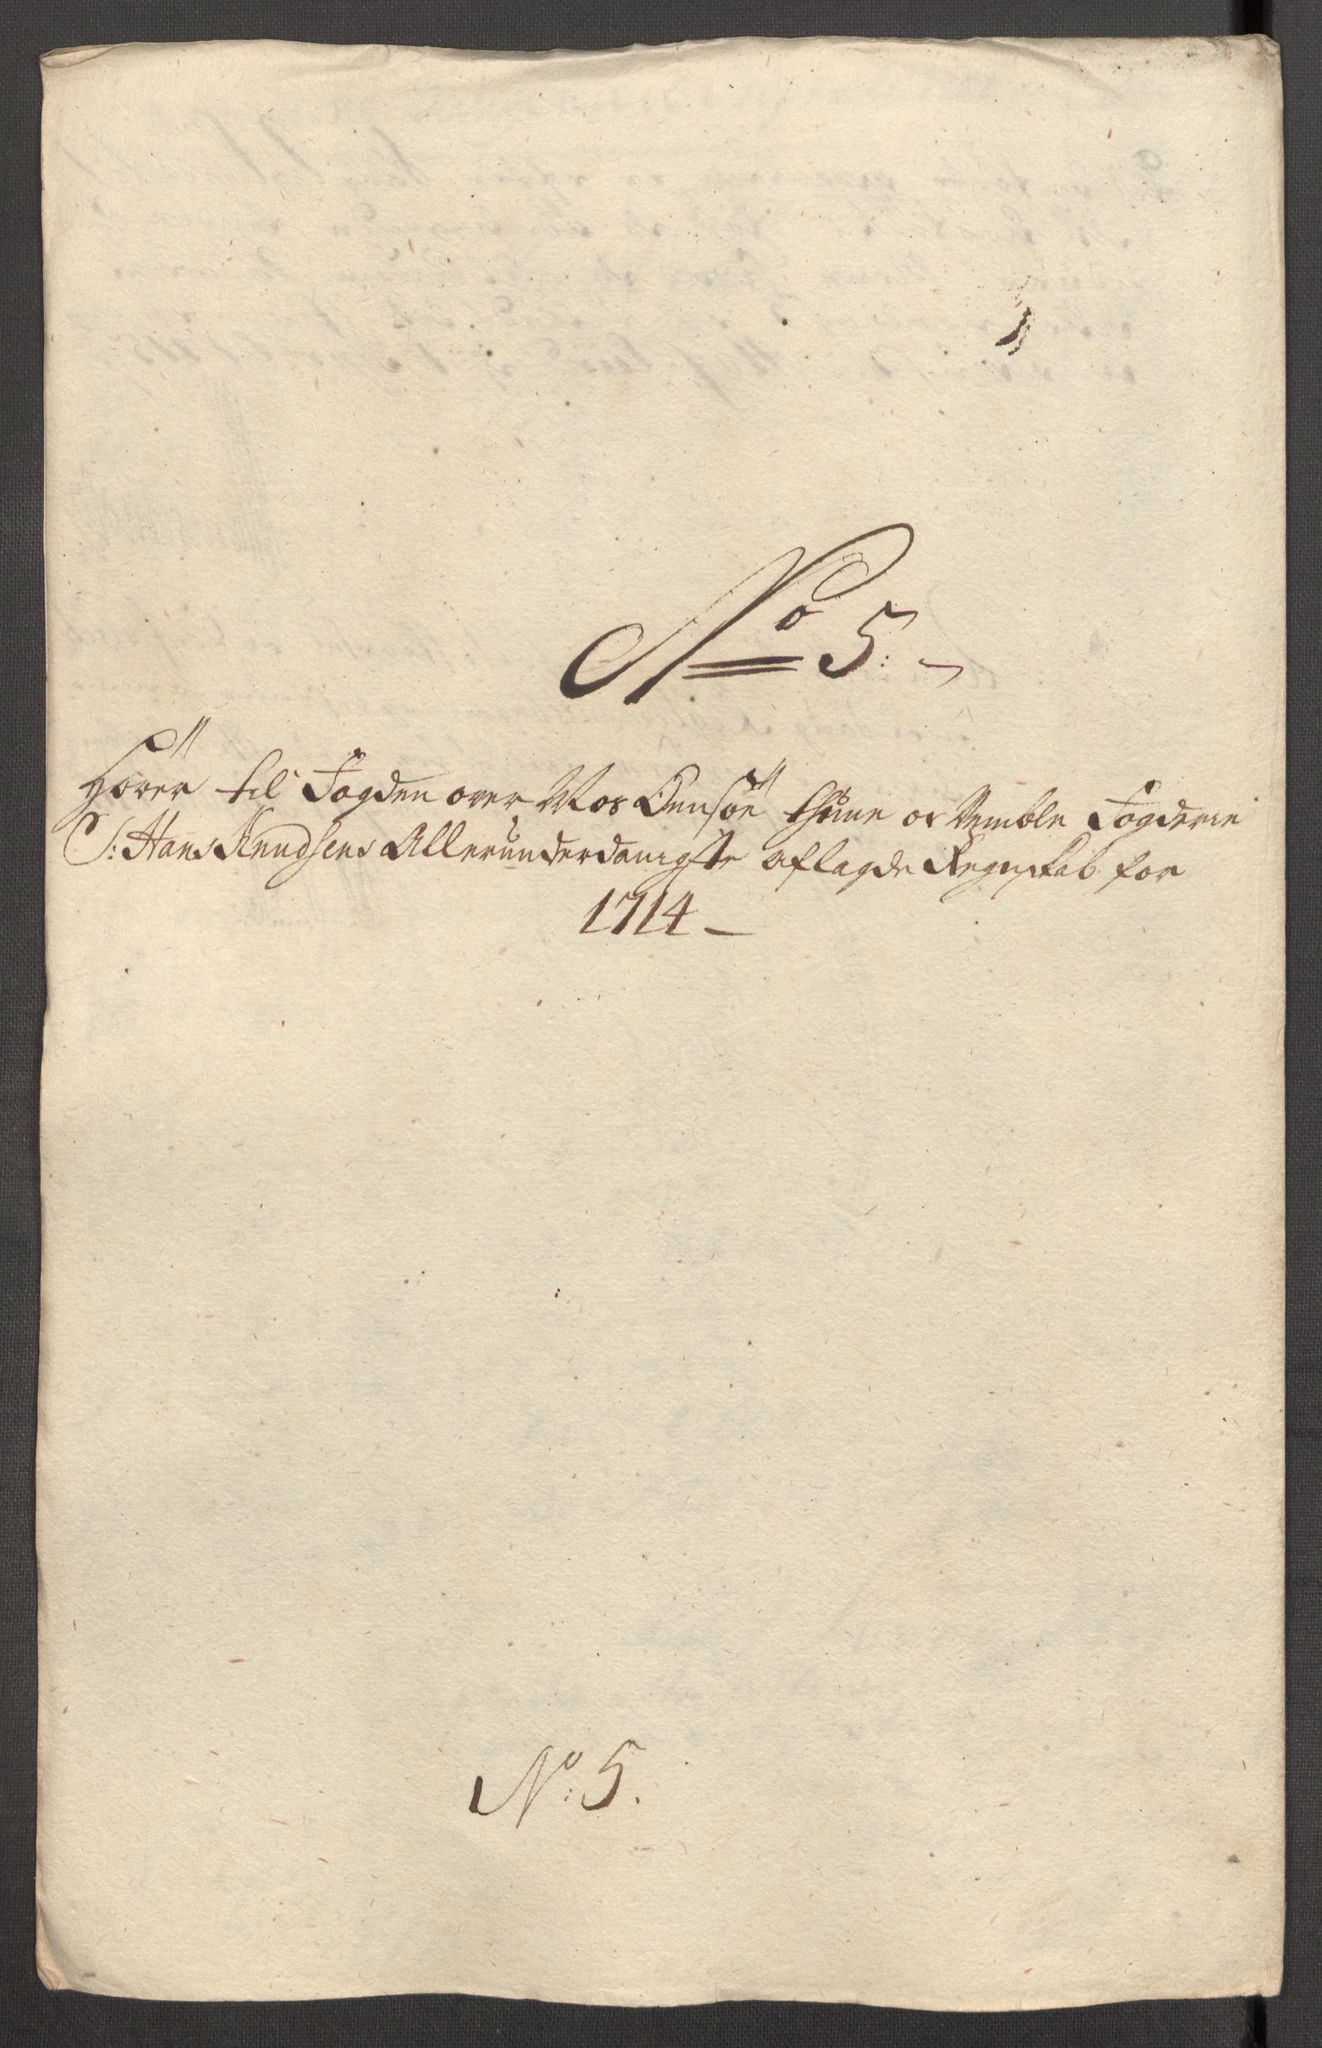 No 5.
Hörer til Fogden over Mos Onsöe thune oc Vemble Fogderie
S: Hans Knudsens Allerunderdanigste aflagde Regnskab for
1714
No: 5.